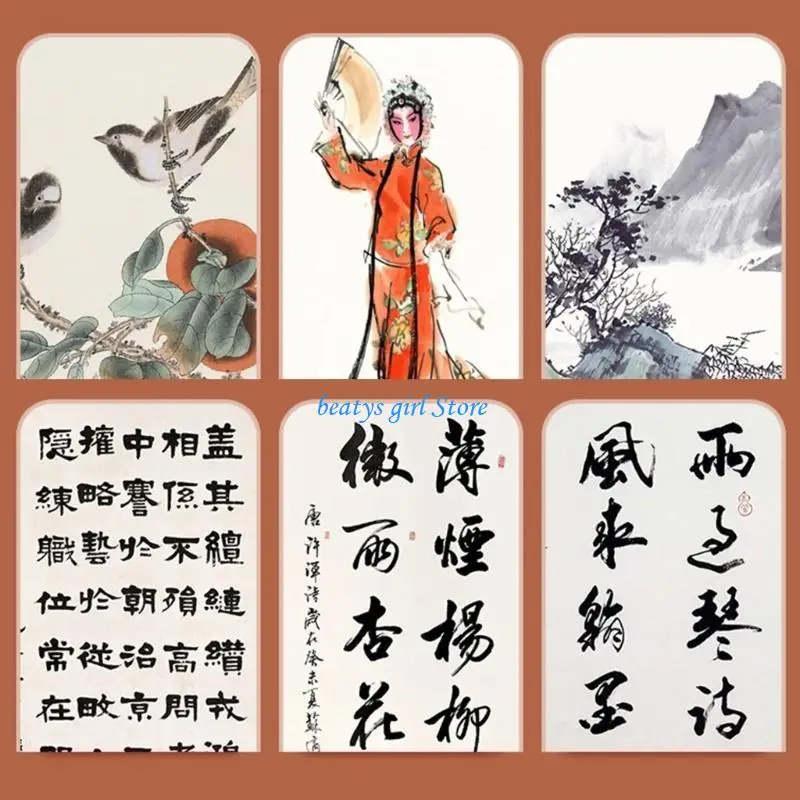 beatys girl Store
盖其繵縺纘戎
相係不殞高問
中謇於朝治京
權略藝於從畋
隐練職位常在
薄煙楊柳
微雨杏花
唐许渾詩歲在癸未夏蘇
雨過琴詩
風来翰墨